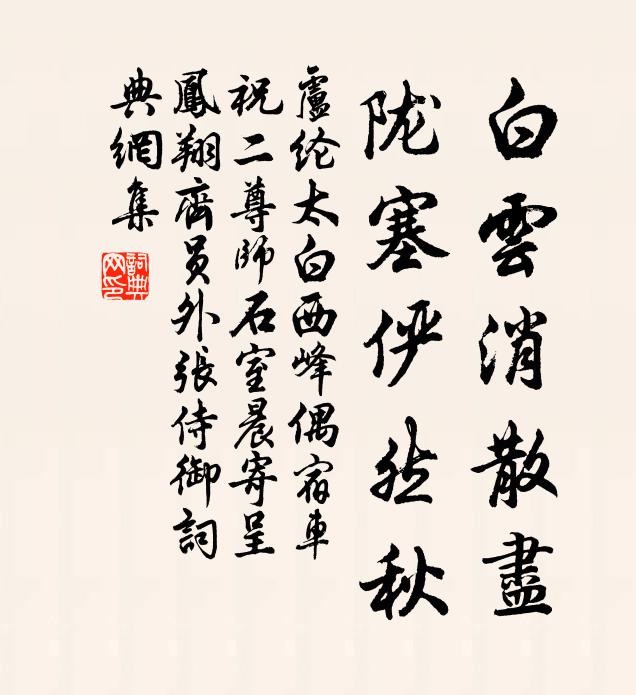 白雲消散盡
陇塞俨然秋
盧纶太白西峰偶宿車
祝二尊師石室晨寄呈
鳳翔齊员外張侍御詞
典網集
詞典
网印